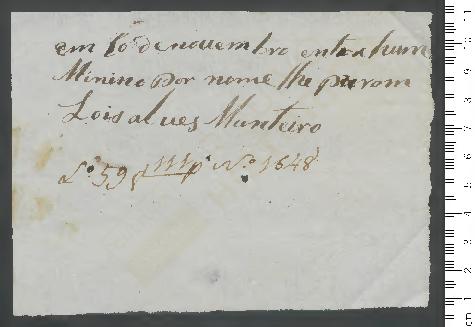 em 10 de novembro entra hum
Minino por nome lhe puzeram
Lois alves Munteiro
Lº 59 f 111 Nº 1648